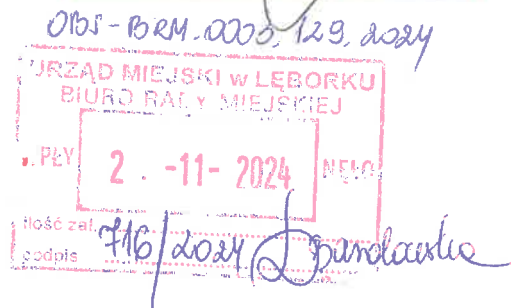 OBS-BRM.0003.129.2024
URZĄD MIEJSKI w LĘBORKU
BIURO RADY MIEJSKIEJ
PŁY NĘŁO
2 . -11- 2024
ilość zał.
podpis 716/2024